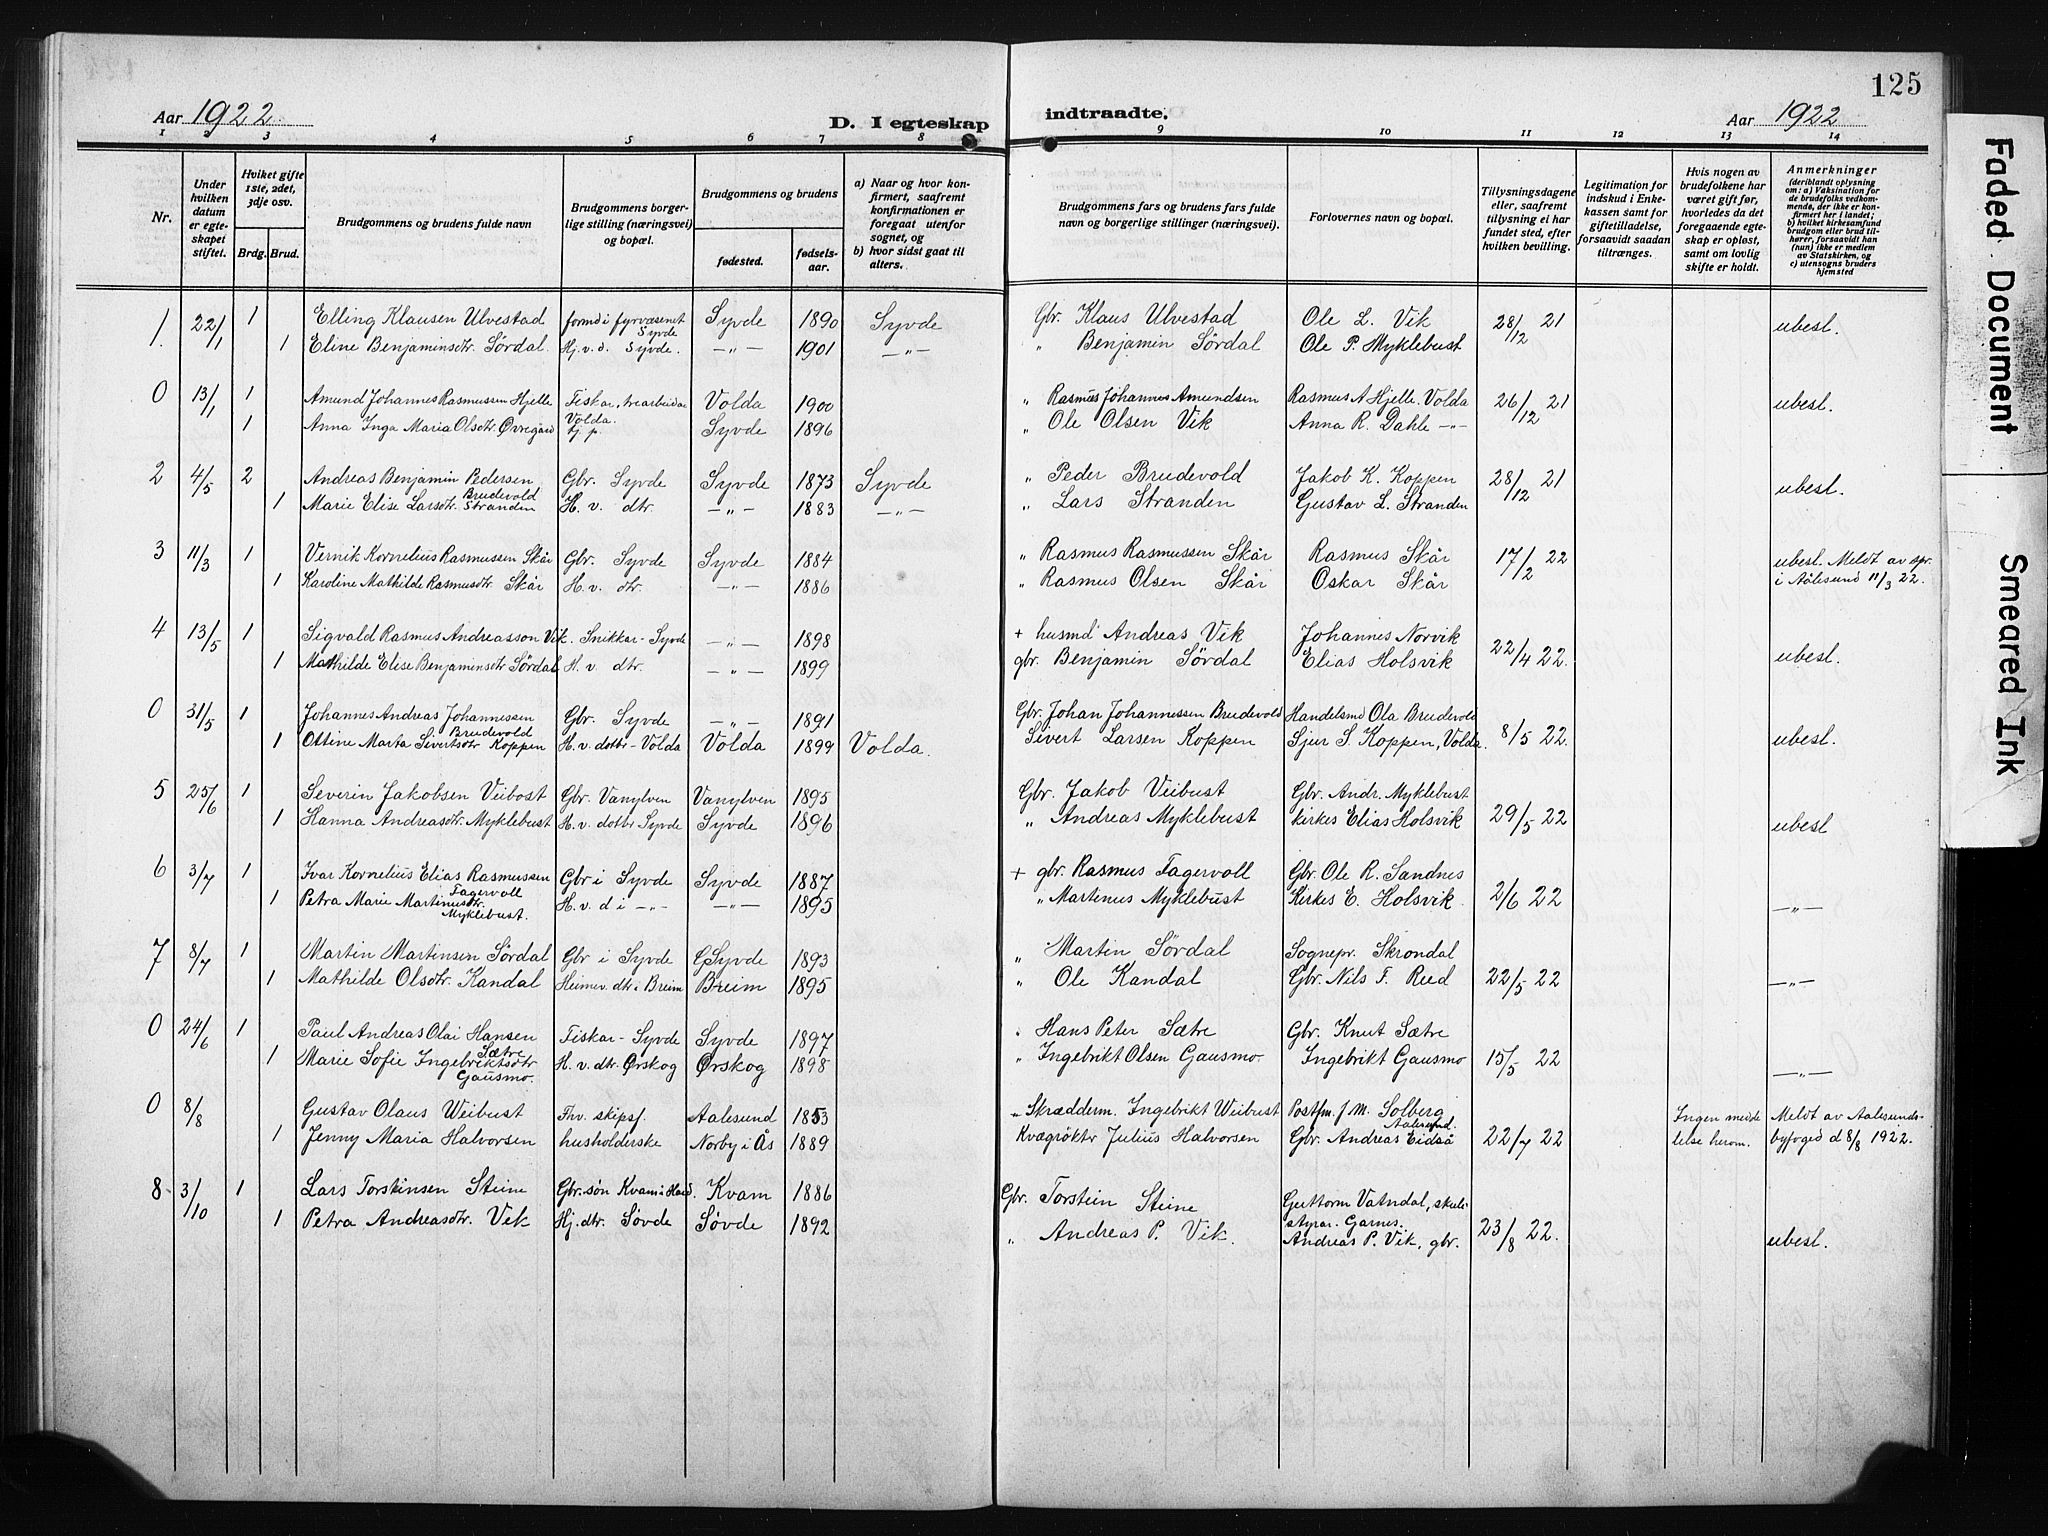 125
Aar 1922
D. I egteskap indtraadte.
Aar 1922
1 2 3 4 5 6 7 8 9 10 11 12 13 14
Nr.
Under hvilken datum er egteskapet stiftet.
Hviket gifte 1ste, 2det, 3dje osv.
Brdg. Brud.
Brudgommens og brudens fulde navn
Brudgommens borgerlige stilling (næringsvei) og bopæl.
Brudgommens og brudens
fødested.
fødselsaar.
a) Naar og hvor konfirmert, saafremt konfirmationen er foregaat utenfor sognet, og
b) hvor sidst gaat til alters.
Brudgommens fars og brudens fars fulde navn og borgerlige stillinger (næringsvei).
Forlovernes navn og bopæl.
Tillysningsdagene eller, saafremt tillysning ei har fundet sted, efter hvilken bevilling.
Legitimation for indskud i Enkekassen samt for giftetilladelse, forsaavidt saadan tiltrænges.
Hvis nogen av brudefolkene har været gift før, hvorledes da det foregaaende egteskap er opløst, samt om lovlig skifte er holdt.
Anmerkninger
(deriblandt oplysning om: a) Vaksination for de brudefolks vedkommende, der ikke er konfirmert her i landet; b) hvilket kirkesamfund brudgom eller brud tilhører, forsaavidt han (hun) ikke er medlem av Statskirken, og c) utensogns bruders hjemsted
1. 22/1 1 Elling Klausen Ulvestad formd i fyrvæsenet Syvde Syvde 1890 Syvde Gbr. Klaus Ulvestad Ole L. Vik 28/12 21 ubesl.
1 Eline Benjaminsdtr. Sördal. Hj. v. d. Syvde. —"— 1901 —"— " Benjamin Sördal Ole P. Myklebust
0 13/1 1 Amund Johannes Rasmussen Hjelle Fiskar, trearbeidar Volda. Volda 1900 " Rasmus Johannes Amundsen Rasmus A Hjelle. Volda 26/12 21 ubesl.
1 Anna Inga Maria Olsdtr. Øvregård tj. p. Syvde 1896 " Ole Olsen Vik Anna R. Dahle —"—
2 4/5 2 Andreas Benjamin Pedersen Brudevold Gbr. Syvde Syvde 1873 Syvde " Peder Brudevold Jakob K. Koppen 28/12 21 ubesl.
1 Marie Elise Larsdtr. Stranden H. v. dtr. —"— 1883 —"— " Lars Stranden Gustav L. Stranden
3 11/3 1 Vernik Kornelius Rasmussen Skår Gbr. Syvde Syvde 1884 " Rasmus Rasmussen Skår Rasmus Skår 17/2 22 ubesl. Meldt av spr.
1 Karoline Mathilde Rasmusdtr. Skår H. v. dtr. —"— 1886 " Rasmus Olsen Skår Oskar Skår i Aalesund 11/3 22.
4 13/5 1 Sigvald Rasmus Andreasson Vik. Snikkar - Syvde —"— 1898 + husmd Andreas Vik Johannes Norvik 22/4 22. ubesl.
1 Mathilde Elise Benjaminsdtr Sördal H. v. dtr. —"— 1899 gbr. Benjamin Sördal Elias Holsvik
0 31/5 1 Johannes Andreas Johannessen Brudevold Gbr. Syvde —"— 1891 Gbr. Johan Johannessen Brudevold Handelsmd Ola Brudevold 8/5 22. ubesl.
1 Ottine Marta Sivertsdtr Koppen H. v. dotbr - Volda Volda 1899 Volda. Sivert Larsen Koppen Sjur S. Koppen, Volda.
5 25/6 1 Severin Jakobsen Veibost Gbr. Vanylven Vanylven 1895 Gbr. Jakob Veibust Gbr. Andr. Myklebust 29/5 22 ubesl
1 Hanna Andreasdtr. Myklebust H. v. dotbr Syvde Syvde 1896 " Andreas Myklebust kirkes Elias Holsvik
6 3/7 1 Ivar Kornelius Elias Rasmussen Fagervoll Gbr i Syvde Syvde 1887 + gbr. Rasmus Fagervoll Gbr. Ole R. Sandnes 2/6 22 —"—
1 Petra Marie Martinusdtr. Myklebust. H. v. d i —"— —"— 1895 " Martinus Myklebust Kirkes E. Holsvik.
7 8/7 1 Martin Martinsen Sördal Gbr i Syvde Syvde 1893 " Martin Sördal Sognepr. Skrondal 22/5 22 —"—
1 Mathilde Olsdtr. Kandal Heimev. dtr i Breim Breim 1895 " Ole Kandal Gbr. Nils F. Reed
0 24/6 1 Paul Andreas Olai Hansen Sætre Fiskar - Syvde Syvde 1897 " Hans Peter Sætre Gbr. Knut Sætre 15/5 22 —"—
1 Marie Sofie Ingebriktsdtr Gausmo. H. v. dtr. Ørskog Ørskog 1898 " Ingebrikt Olsen Gausmo Ingebrikt Gausmo
0 8/8 Gustav Olaus Weibust Fhv. skipsf. Aalesund 1853 " Skrædderm. Ingebrikt Weibust Postfm. J. M. Solberg Aalesund. 22/7 22 Ingen meddelelse herom. Meldt av Aalesunds-
1 Jenny Maria Halvorsen husholderske Norby i Ås 1889 Kvægrøktr Julius Halvorsen Gbr. Andreas Eidså byfoged d 8/8 1922.
8 3/10 1 Lars Torstinsen Steine Gbr. søn Kvam i Hard. Kvam 1886 Gbr. Torstein Steine Guttorm Vatndal, skulestyrar. Garnes. 23/8 22. ubesl.
1 Petra Andreasdtr. Vik Hj. dtr. Søvde Søvde 1892 " Andreas P. Vik. Andreas P. Vik, gbr.
Faded Document
Smeared Ink